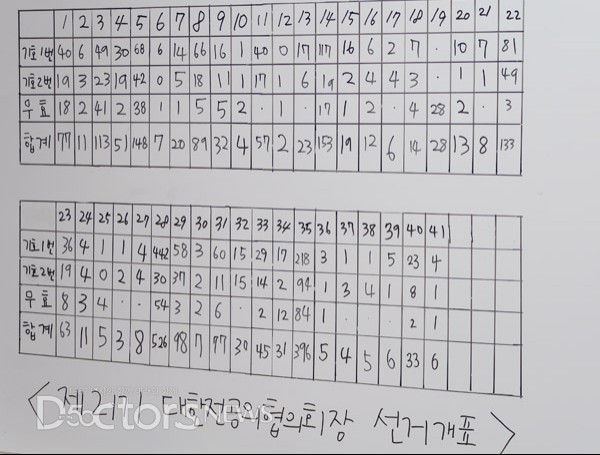 1 2 3 4 5 6 7 8 9 10 11 12 13 14 15 16 17 18 19 20 21 22
기호1번 40 6 49 30 68 6 14 66 16 1 40 0 17 117 16 6 2 7 · 10 7 81
기호2번 19 3 23 19 42 0 5 18 11 1 17 1 6 19 2 4 4 3 · 1 1 49
무효 18 2 41 2 38 1 1 5 5 2 · 1 · 17 1 2 · 4 28 2 · 3
합계 77 11 113 51 148 7 20 89 32 4 57 2 23 153 19 12 6 14 28 13 8 133
23 24 25 26 27 28 29 30 31 32 33 34 35 36 37 38 39 40 41
기호1번 36 4 1 1 4 442 58 3 60 15 29 17 218 3 1 1 5 23 4
기호2번 19 4 0 2 4 30 37 2 11 15 14 2 94 1 3 4 1 8 1
무효 8 3 4 · · 54 3 2 6 · 2 12 84 1 · · · 2 1
합계 63 11 5 3 8 526 98 7 77 30 45 31 396 5 4 5 6 33 6
<제21기 대한전공의협의회장 선거개표>
Doctor'sNEWS